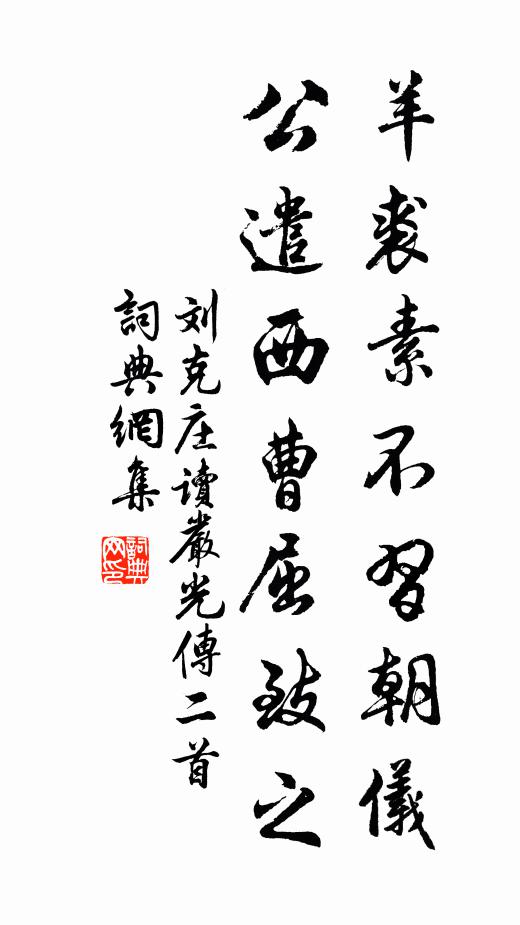 羊裘素不習朝儀
公遣西曹屈致之
刘克庄讀嚴光傳二首
詞典網集
詞典网印